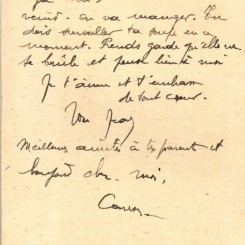 vient - on va manger. Tu
dois surveiller ta soupe en ce
moment. Prends garde qu'elle ne
se brûle et pense bien à moi
Je t'aime et t'embrasse
de tout cœur.
Ton
Meilleures amitiés à tes parents et
bonjour chez moi,